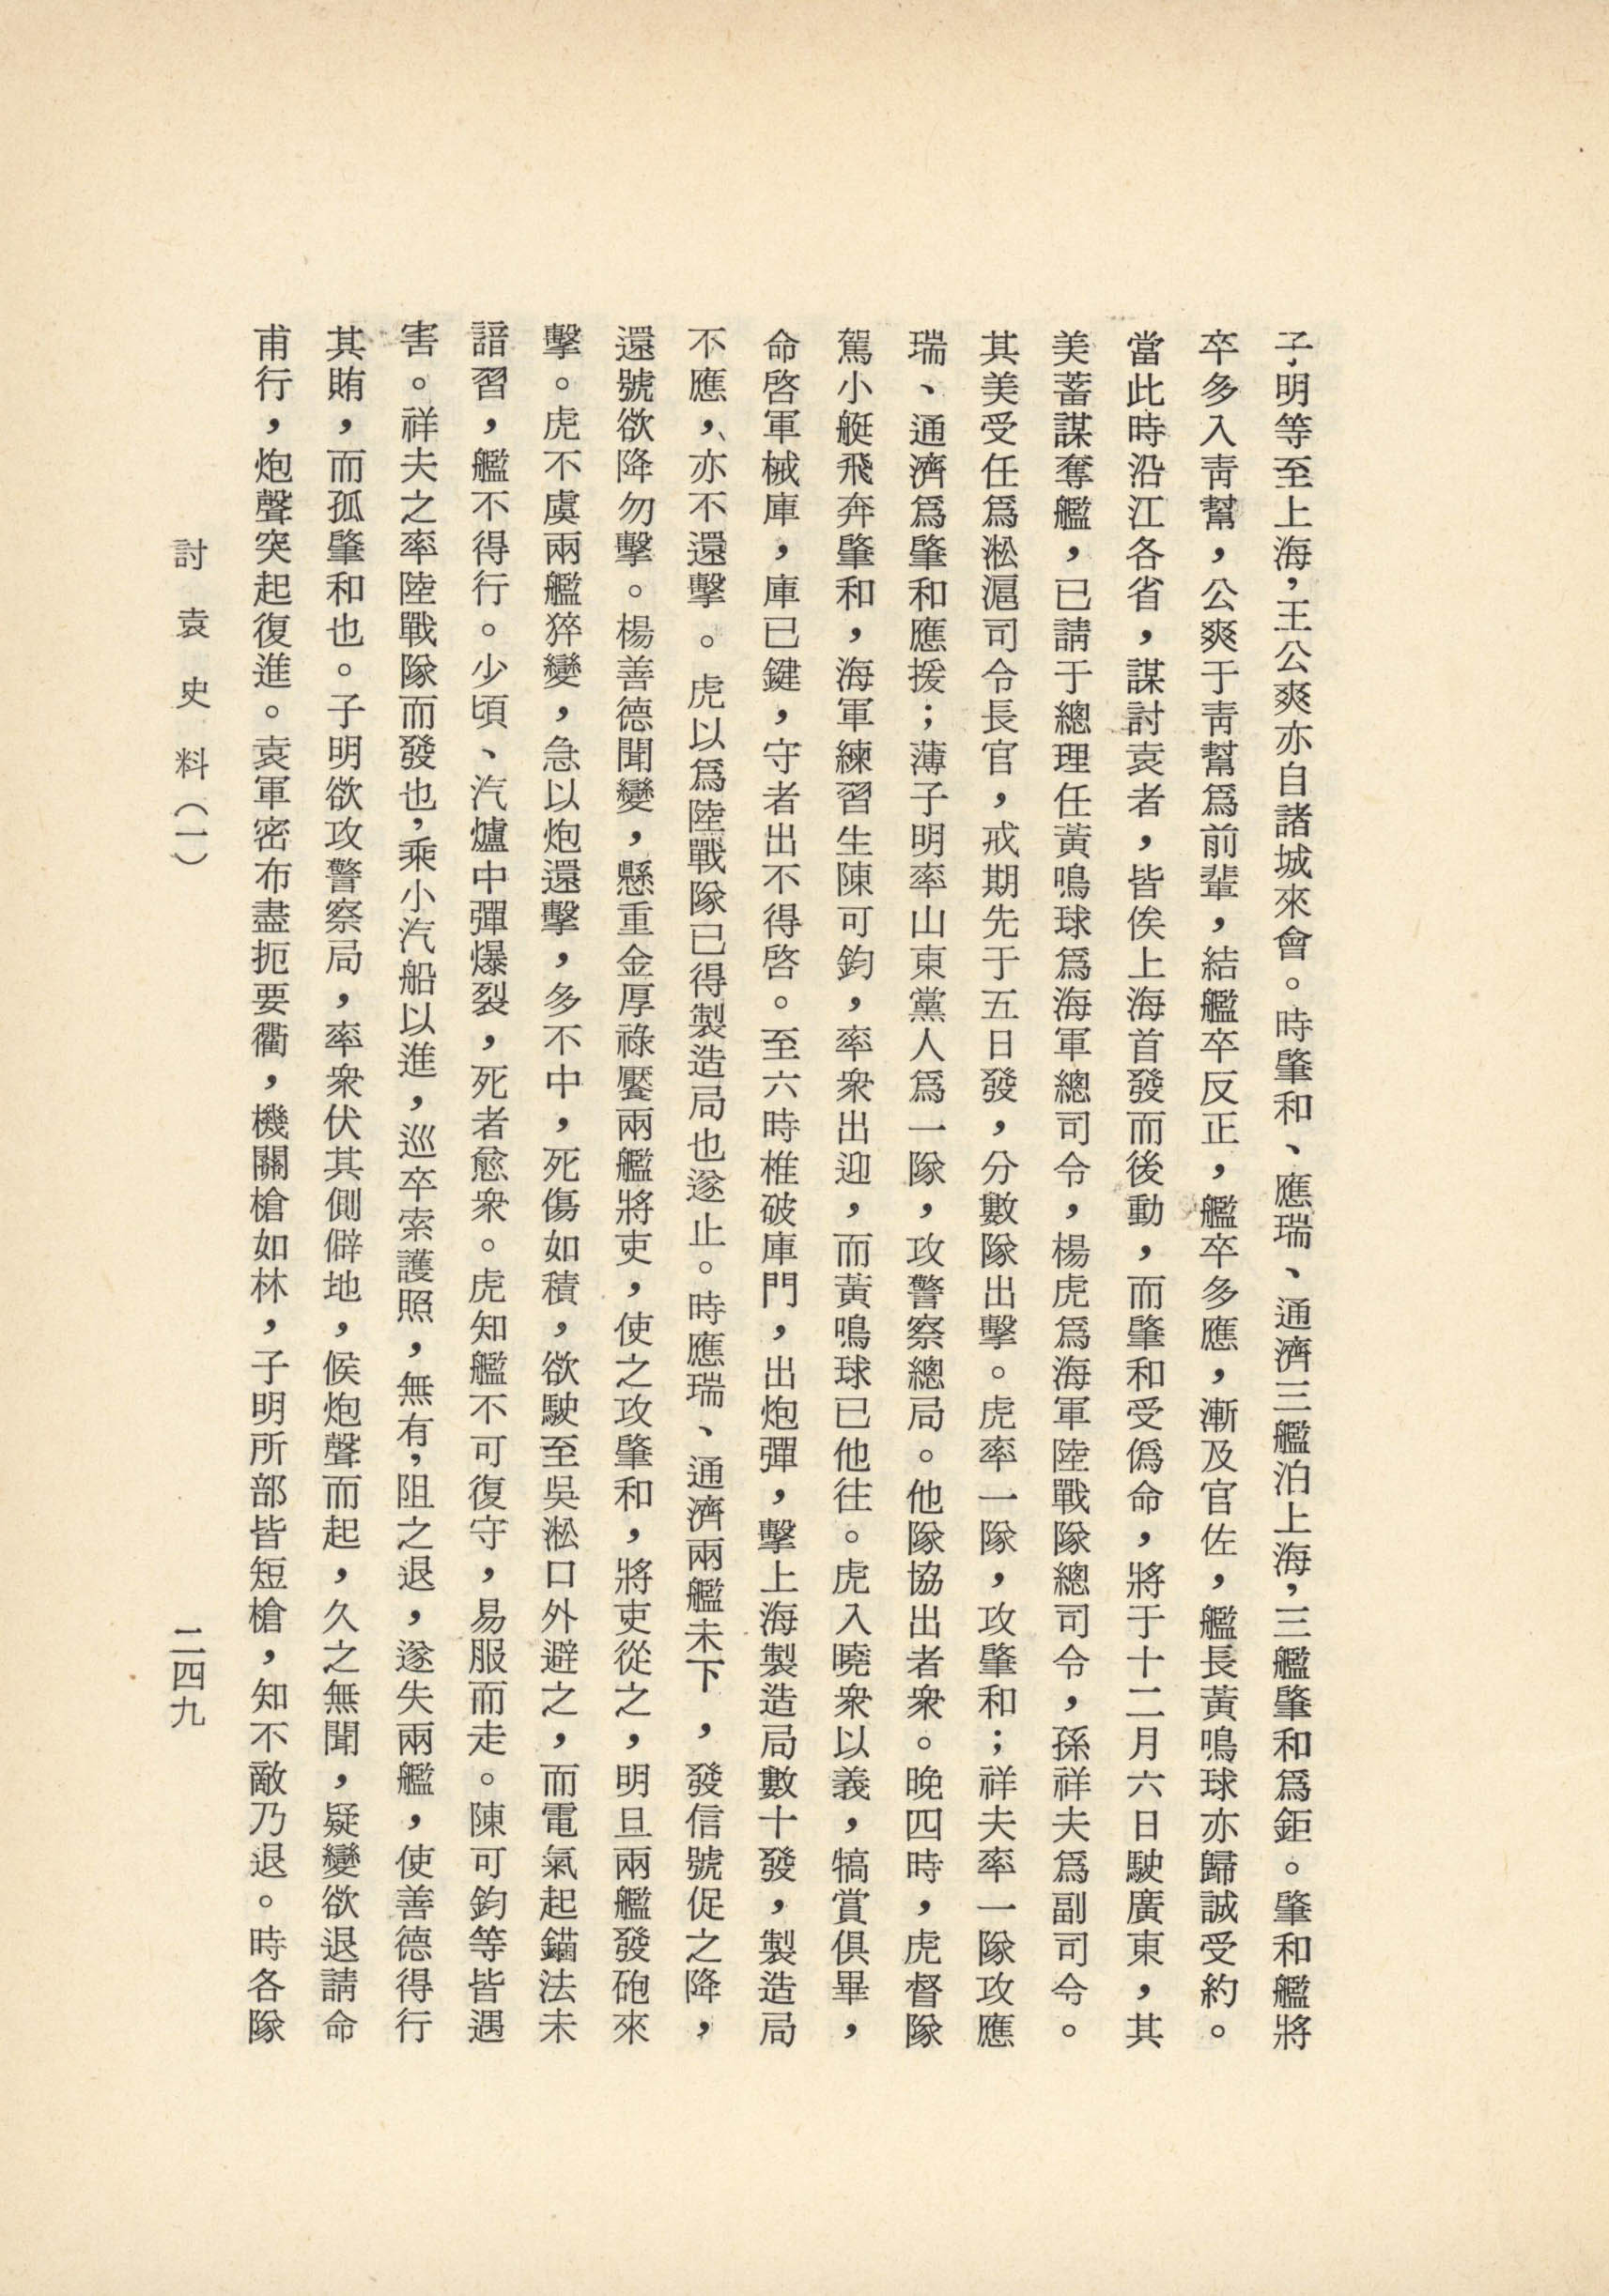 子明等至上海，王公爽亦自諸城來會。時肇和、應瑞、通濟三艦泊上海，三艦肇和爲鉅。肇和艦將
卒多入靑幫，公爽于靑幫爲前輩，結艦卒反正，艦卒多應，漸及官佐，艦長黃鳴球亦歸誠受約。
當此時沿江各省，謀討袁者，皆俟上海首發而後動，而肇和受僞命，將于十二月六日駛廣東，其
美蓄謀奪艦，已請于總理任黃鳴球爲海軍總司令，楊虎爲海軍陸戰隊總司令，孫祥夫爲副司令。
其美受任爲淞滬司令長官，戒期先于五日發，分數隊出擊。虎率一隊，攻肇和；祥夫率一隊攻應
瑞、通濟爲肇和應援；薄子明率山東黨人爲一隊，攻警察總局。他隊協出者衆。晚四時，虎督隊
駕小艇飛奔肇和，海軍練習生陳可鈞，率衆出迎，而黃鳴球已他往。虎入曉衆以義，犒賞俱畢，
命啓軍械庫，庫已鍵，守者出不得啓。至六時椎破庫門，出炮彈，擊上海製造局數十發，製造局
不應，亦不還擊。虎以爲陸戰隊已得製造局也遂止。時應瑞、通濟兩艦未下，發信號促之降，
還號欲降勿擊。楊善德聞變，懸重金厚祿饜兩艦將吏，使之攻肇和，將吏從之，明旦兩艦發砲來
擊。虎不虞兩艦猝變，急以炮還擊，多不中，死傷如積，欲駛至吳淞口外避之，而電氣起錨法未
諳習，艦不得行。少頃、汽爐中彈爆裂，死者愈衆。虎知艦不可復守，易服而走。陳可鈞等皆遇
害。祥夫之率陸戰隊而發也，乘小汽船以進，巡卒索護照，無有，阻之退，遂失兩艦，使善德得行
其賄，而孤肇和也。子明欲攻警察局，率衆伏其側僻地，候炮聲而起，久之無聞，疑變欲退請命
甫行，炮聲突起復進。袁軍密布盡扼要衢，機關槍如林，子明所部皆短槍，知不敵乃退。時各隊
討袁史料（一）
二四九